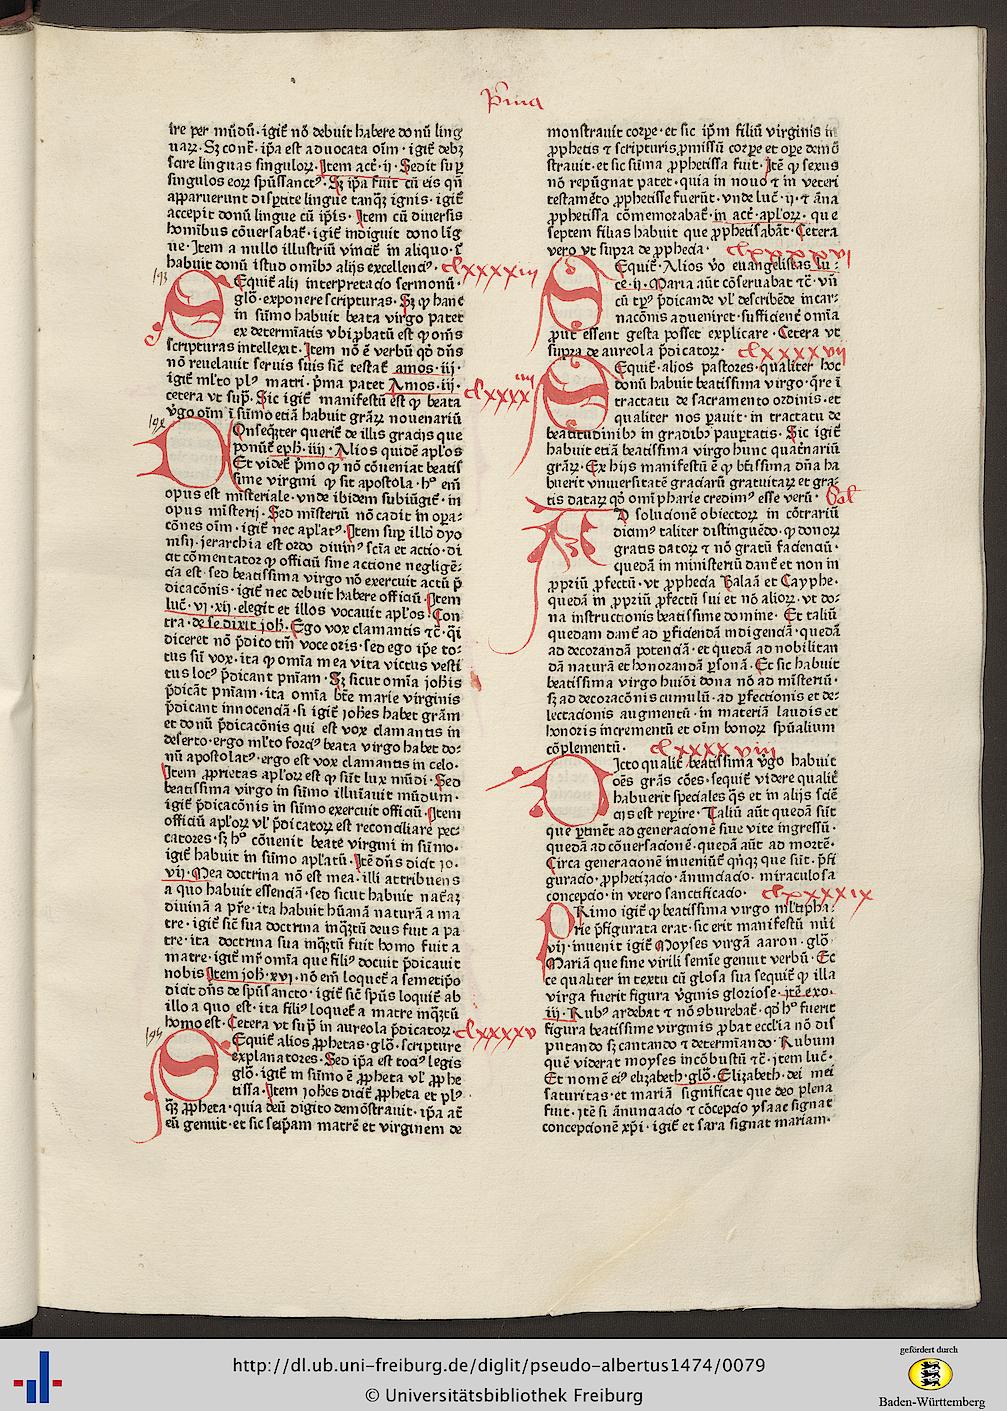 Prima
ire per mūdū · igit̄ nō debuit habere donū ling
uarꝝ · Sꝫ con̄t · ip̄a est aduocata oīm · igit̄ debꝫ
scire linguas singulorꝝ · Item act̄ · ij · Sedit suꝑ
singulos eorꝝ sp̄ussanctꝰ · Sꝫ ip̄a fuit cū eis qn̄
apparuerunt disꝑtite lingue tanqꝫ ignis · igit̄
accepit donū lingue cū ip̄is · Item cū diuersis
hoīnibus cōuersabat̄ · igit̄ indiguit dono līg
ue · Item a nullo illustriū vincit̄ in aliquo · g̈
habuit donū istud omībꝰ alijs excellenciꝰ · clxxxxiij
193
SEquit̄ alij interpretacio sermonū ·
glō · exponere scripturas · Sꝫ qꝫ hanc
in sūmo habuit beata virgo patet
ex determīatis vbi ꝓbatū est ꝙ om̄s
scripturas intellexit · Item nō ē verbū qđ dn̄s
nō reuelauit seruis suis sic̄ testat̄ amos · iij ·
igit̄ ml̄to plꝰ matri · p̄ma patet Amos · iij · clxxxxiiii
cetera vt sup̄ · Sic igit̄ manifestū est ꝙ beata
v̄go oīm ī sūmo etiā habuit grāꝝ nouenariū
194
COnseqn̄ter querit̄ de illis gracijs que
ponūt̄ eph̄ · iiij · Alios quidē apl̄os
Et videt̄ p̄mo ꝙ nō cōueniat beatis
sime virgini ꝙ sit apostola · hꝰ em̄
opus est misteriale · vnde ibidem subiūgit̄ · in
opus misterij · Sed misteriū nō cadit in oꝑa-
cōnes oīm · igit̄ nec apl̄atꝰ · Item suꝑ illo dyo
nisij · ierarchia est ordo diuinꝰ scīa et actio · di
cit cōmentator ꝙ officiū sine actione negligē-
cia est · sed beatissima virgo nō exercuit actū p̄
dicacōnis · igit̄ nec debuit habere officiū · Item
luc̄ · vi · xij · elegit et illos vocauit apl̄os · Con
tra · de se dixit ioh̄ · Ego vox clamantis ⁊c̄ · q̈i
diceret nō p̄dico tm̄ voce oris · sed ego ip̄e to-
tus sū vox · ita ꝙ omīa mea vita victus vesti
tus locꝰ p̄dicant pn̄iam · Sꝫ sicut omīa ioh̄is
p̄dicāt pn̄iam · ita omīa bt̄e marie virginis
p̄dicant innocenciā · si igit̄ ioh̄es habet grām
et donū p̄dicacōnis qui est vox clamantis in
deserto · ergo ml̄to forciꝰ beata virgo habet do-
nū apostolatꝰ · ergo est vox clamantis in celo ·
Item ꝓprietas apl̄orꝝ est ꝙ sūt lux mūdi · Sed
beatissima virgo in sūmo illuīauit mūdum ·
igit̄ p̄dicacōnis in sūmo exercuit officiū · Item
officiū apl̄orꝝ vl̄ p̄dicatorꝝ est reconciliare pec-
catores · sꝫ hꝰ cōuenit beate virgini in sūmo ·
igit̄ habuit in sūmo apl̄atū · Itē dn̄s dicit io ·
vij · Mea doctrina nō est mea · illi attribuens
a quo habuit essenciā · sed sicut habuit nat̄aꝫ
diuinā a pr̄e · ita habuit hūanā naturā a ma
tre · igit̄ sic̄ sua doctrina inqꝫtū deus fuit a pa
tre · ita doctrina sua inqꝫtū fuit homo fuit a
matre · igit̄ mr̄ omīa que filiꝰ docuit p̄dicauit
nobis Item ioh̄ · xvi · nō em̄ loquet̄ a semetip̄o
dicit dn̄s de sp̄usancto · igit̄ sic̄ sp̄us loquit̄ ab
illo a quo est · ita filiꝰ loquet̄ a matre inqꝫtū
homo est · Cetera vt sup̄ in aureola p̄dicatorꝝ · clxxxxv
195
SEquit̄ alios ꝓphetas · glō · scripture
explanatores · Sed ip̄a est tociꝰ legis
glō · igit̄ in sūmo ē ꝓpheta vl̄ ꝓphe
tissa · Item ioh̄es dicit̄ ꝓpheta et plꝰ
qꝫ ꝓpheta · quia deū digito demōstrauit · ip̄a at̄
eū genuit · et sic seip̄am matrē et virginem de
monstrauit corꝑe · et sic ip̄m filiū virginis in
ꝓphetis ⁊ scripturis ꝓmissū corꝑe et oꝑe demō
strauit · et sic sūma ꝓphetissa fuit · Itē ꝙ sexus
nō repūgnat patet · quia in nouo ⁊ in veteri
testamēto ꝓphetisse fuerūt · vnde luc̄ · ij · ⁊ āna
ꝓphetissa cōmemorabat̄ · in act̄ · apl̄orꝝ · que
septem filias habuit que ꝓphetisabāt · Cetera
vero vt supra de ꝓphecia · clxxxxvi
SEquit̄ · Alios v̄o euangelistas lu-
ce · ij · Maria aūt cōseruabat ⁊c̄ · vn̄
cū tp̄ꝰ p̄dicande vl̄ describēde incar-
nacōnis adueniret · sufficient̄ omīa
ꝓut essent gesta posset explicare · Cetera vt
supra de aureola p̄dicatorꝝ · clxxxxvij
SEquit̄ · alios pastores · qualiter hoc
donū habuit beatissima virgo · q̄re ī
tractatu de sacramento ordinis · et
qualiter nos ꝑauit · in tractatu de
beatitudinibꝰ in gradibꝰ pauꝑtatis · Sic igit̄
habuit etiā beatissima virgo hunc quat̄nariū
grāꝝ · Ex hijs manifestū ē ꝙ bt̄issima dn̄a ha
buerit vniuersitatē graciarū gratuitaꝝ et gra-
tis dataꝝ qđ omīpharie credimꝰ esse verū · Sol̄
AD solucionē obiectorꝝ in cōtrariū
diciꝰ taliter distinguēdo · ꝙ donorꝝ
gratis datorꝝ ⁊ nō gratū faciencīū ·
quedā in ministeriū dant̄ et non in
ꝓpriū ꝓfectū · vt ꝓphecia Balaā et Cayphe ·
quedā in ꝓpriū ꝓfectū sui et nō aliorꝝ · vt do-
na instructionis beatissime domine · Et taliū
quedam dant̄ ad ꝑficiendā indigenciā · quedā
ad decorandā potenciā · et quedā ad nobilitan
dā naturā et honorandā ꝑsonā · Et sic habuit
beatissima virgo huiōi dona nō ad misteriū ·
sꝫ ad decoracōnis cumulū · ad ꝑfectionis et de-
lectacionis augmentū · in materiā laudis et
honoris incrementū et oīm bonorꝝ sp̄ualium
cōplementū · clxxxxviij
DIcto qualit̄ beatissima v̄go habuit
oēs grās cōes · sequit̄ videre qualit̄
habuerit speciales q̄s et in alijs sc̄īs
cijs est reꝑire · Taliū aūt quedā sūt
que ꝑtinēt ad generacionē siue vite ingressū ·
quedā ad cōuersacionē · quedā aūt ad mortē ·
Circa generacionē inueniūt̄ qn̄qꝫ que sūt · p̄fi
guracio · ꝓphetizacio · ānunciacio · miraculosa
concepcio · in vtero sanctificacio · clxxxxix
PRimo igit̄ ꝙ beatissima virgo ml̄tipha-
rie p̄figurata erat · sic erit manifestū nūi
vij · inuenit igit̄ Moyses virgā aaron · glō
Mariā que sine virili semīe genuit verbū · Ec
ce qualiter in textu cū glosa sua sequit̄ ꝙ illa
virga fuerit figura v̄ginis gloriose · itē exo ·
iij · Rubꝰ ardebat ⁊ nō ꝯburebat̄ · qđ hꝰ fuerit
figura beatissime virginis ꝓbat ecc̄lia nō dis
putando sꝫ cantando ⁊ determīando · Rubum
quē viderat moyses incōbustū ⁊c̄ · item luc̄ ·
Et nomē eiꝰ elizabeth · glō · Elizabeth · dei mei
saturitas · et mariā significat que deo plena
fuit · itē sī ānunciacio ⁊ cōcepcio ysaac signat
concepcionē xp̄i · igit̄ et sara signat mariam ·
http://dl.ub.uni-freiburg.de/diglit/pseudo-albertus1474/0079
© Universitätsbibliothek Freiburg
gefördert durch
Baden-Württemberg